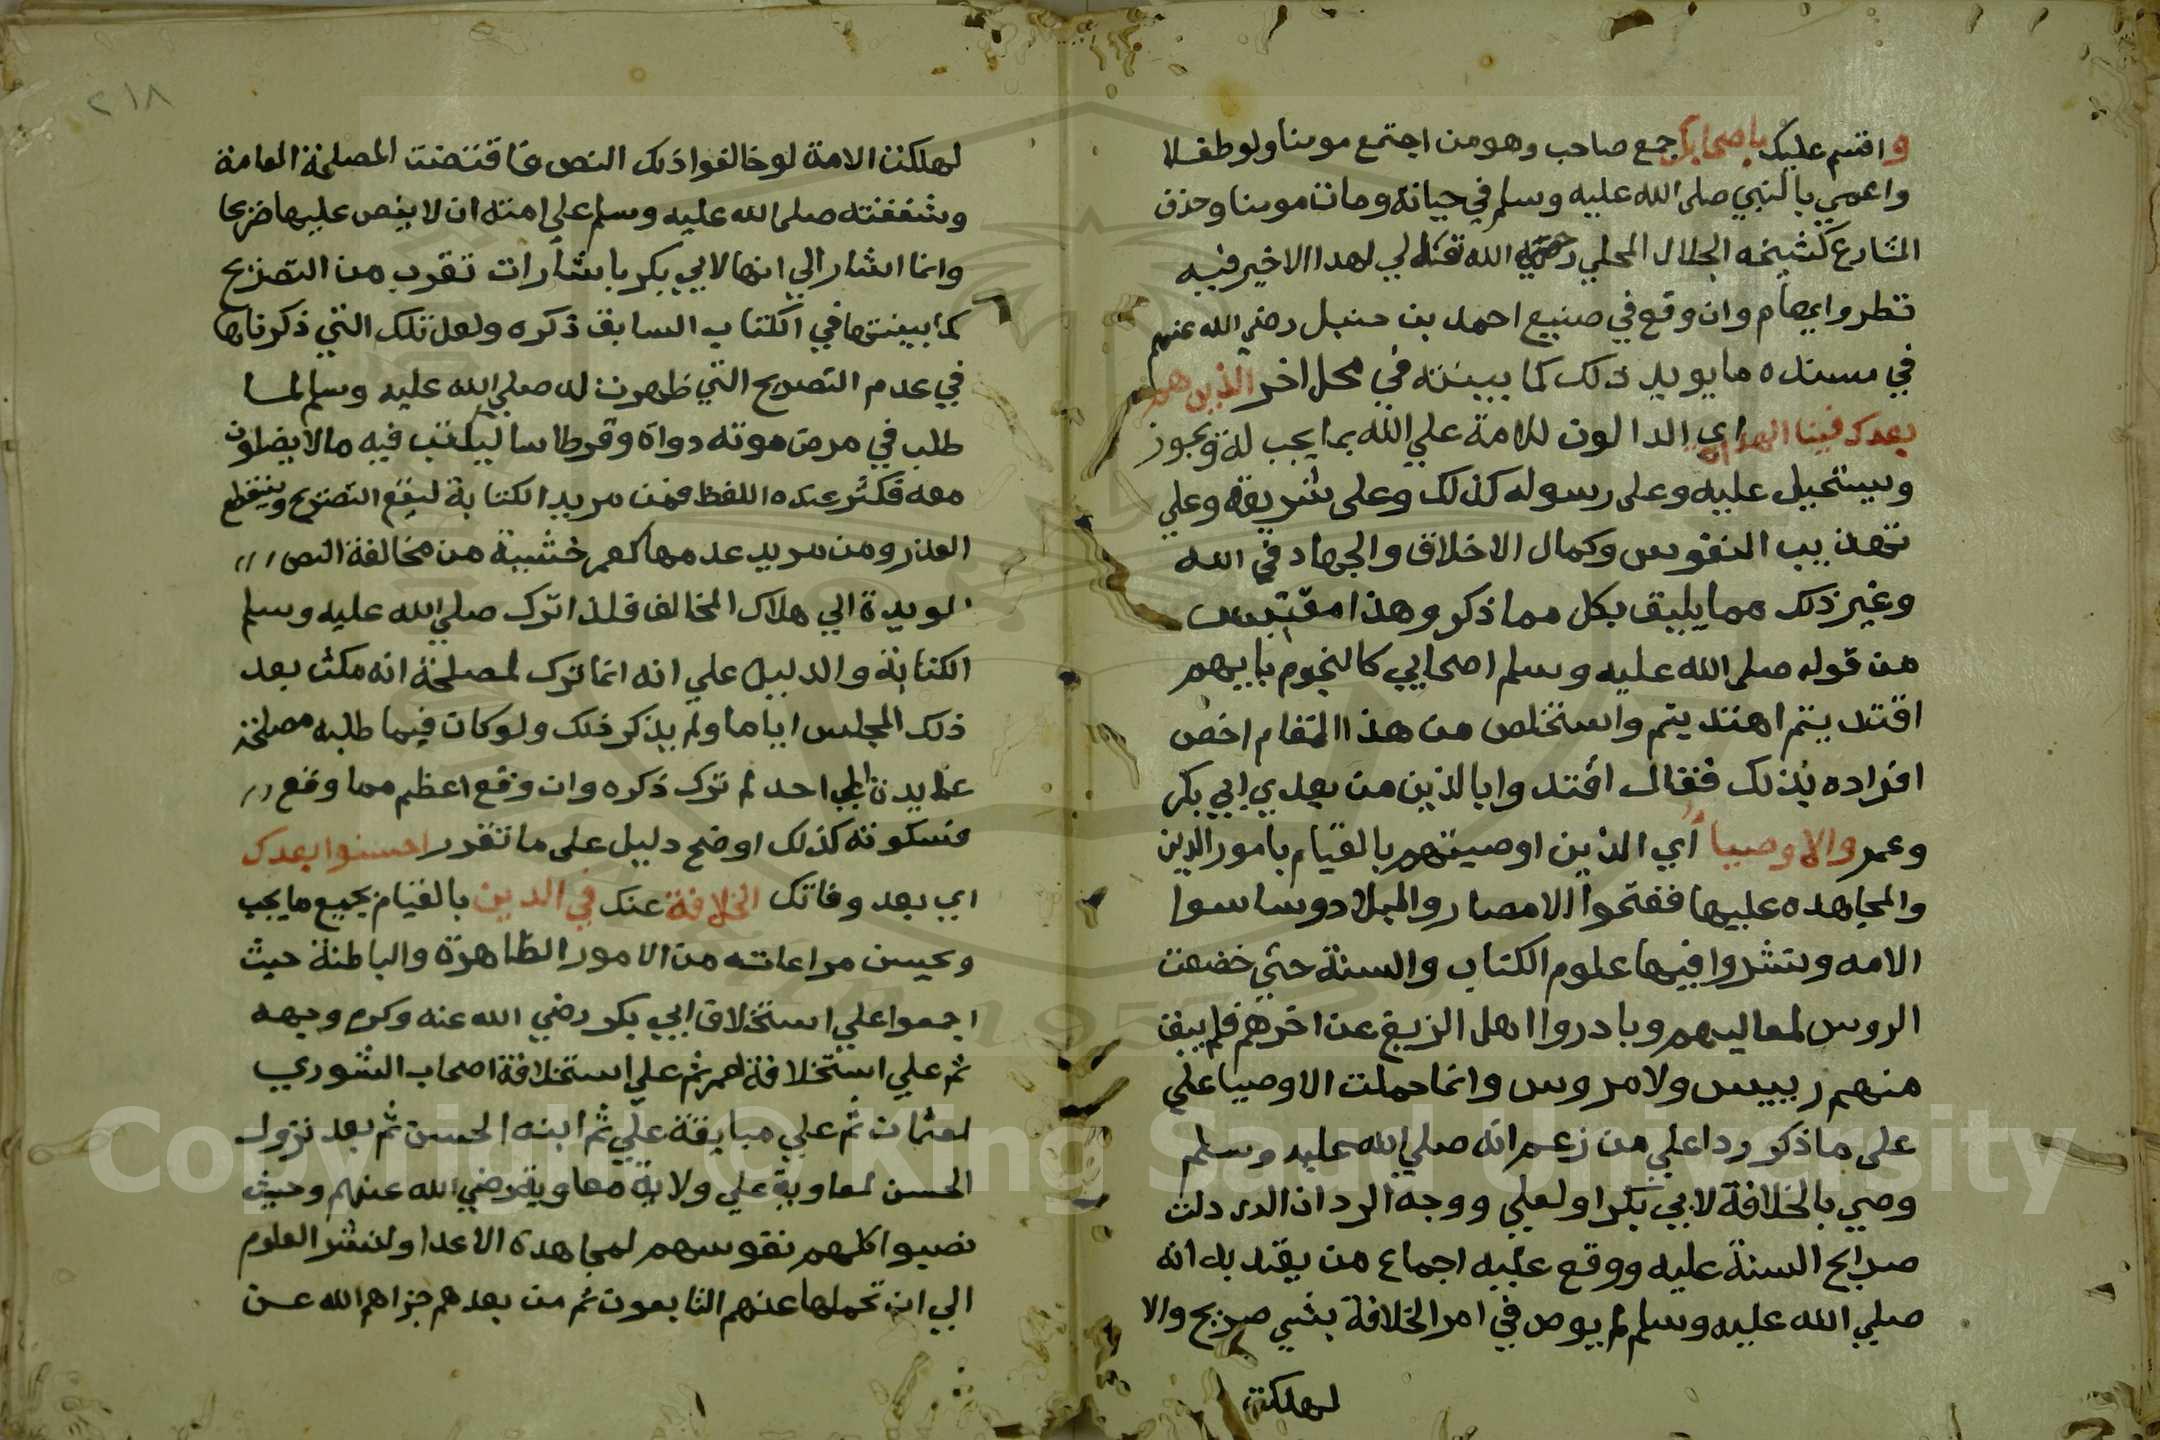 واقسم عليك باصحابك جمع صاحب وهو من اجتمع مومنا ولو طفلا
واعمي بالنبي صلى الله عليه وسلم في حياته ومات مومنا وحذف
الشارع كشيخه الجلال المحلي رحمه الله لهدا الاخير فيه
نظر وايهام وان وقع في صنيع احمد بن حنبل رضي الله عنهم
في مسنده ما يويد ذلك كما بيينته في محل اخر الذين هم
بعدك فينا الهداة اي الدالون للامة علي الله بما يجب له ويجوز
ويستحيل عليه وعلى رسوله كذلك وعلى شريعته وعلي
تهذيب النفوس وكمال الاخلاق والجهاد في الله
وغير ذلك مما يليق بكل مما ذكر وهذا مقتبس
من قوله صلى الله عليه وسلم اصحابي كالنجوم بايهم
اقتديتم اهتديتم واستخلص من هذا المقام اخص
افراده بذلك فقال اقتدوا بالذين من بعدي ابي بكر
وعمر والاوصيا أي الذين اوصيتهم بالقيام بامور الدين
والمجاهده عليها ففتحوا الامصار والبلاد وساسوا
الامه ونشروا فيها علوم الكتاب والسنة حتي خضعت
الروس لمعاليهم وبادروا اهل الزيغ عن اخرهم فلم يبق
منهم رييس ولا مروس وانما حملت الاوصيا علي
على ما ذكر ردا علي من زعم انه صلي الله عليه وسلم
وصي بالخلافة لابي بكر او لعلي ووجه الرد ان الذي دلت
صرايح السنة عليه ووقع عليه اجماع من يعتد به انه
صلي الله عليه وسلم لم يوص في امر الخلافة بشي صريح والا
لهلكت
٢١٨
لهلكت الامة لو خالفوا ذلك النص فاقتضت المصلحة العامة
وشفقته صلى الله عليه وسلم علي امته ان لا ينص عليها صريحا
وانما اشار الي انها لابي بكر باشارات تقرب من التصريح
كما بيينتها في الكتاب السابق ذكره ولعل تلك التي ذكرناها
في عدم التصريح التي ظهرت له صلى الله عليه وسلم لما
طلب في مرض موته دواة وقرطاسا ليكتب فيه ما لا يضلون
معه فكثر عنده اللغط فمن مريد الكتابة ليقع التصريح وينقطع
العذر ومن مريد عدمها كعمر خشية من مخالفة النص
المويدة الي هلاك المخالف فلذا ترك صلي الله عليه وسلم
الكتابة والدليل علي انه انما ترك لمصلحة انه مكث بعد
ذلك المجلس اياما ولم يذكر ذلك ولو كان فيما طلبه مصلحة
عايدة الي احد لم ترك ذكره وان وقع اعظم مما وقع
فسكوته كذلك اوضح دليل على ما تقرر احسنوا بعدك
اي بعد وفاتك الخلافة عنك في الدين بالقيام بجميع ما يجب
ويحسن مراعاته من الامور الظاهرة والباطنة حيث
اجمعوا علي استخلاف ابي بكر رضي الله عنه وكرم وجهه
ثم علي استخلافة لعمر ثم علي استخلافة اصحاب الشوري
لعثمان ثم علي مبايعة علي ثم ابنه الحسن ثم بعد نزول
الحسن لمعاوية علي ولاية معاوية رضي الله عنهم وحيث
نصبوا كلهم نفوسهم لمجاهدة الاعدا ولنشر العلوم
الي ان تحملها عنهم التابعون ثم من بعدهم جزاهم الله عن
Copyright © King Saud University